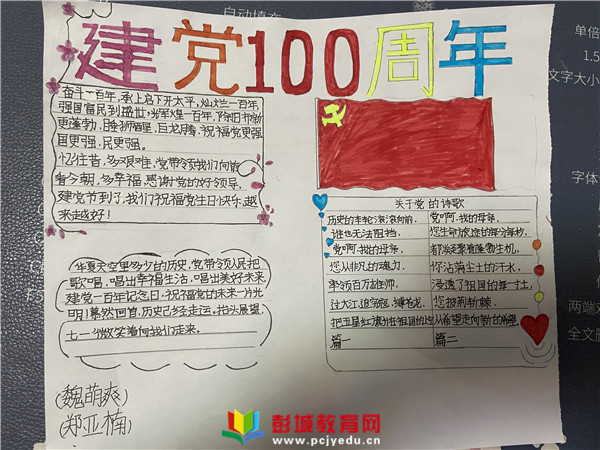 建党100周年
奋斗一百年,承上启下开太平,灿烂一百年,
强国富民到盛世,光辉煌一百年,阵阵日布新
更蓬勃,睡狮醒,巨龙腾,祝福党更强
国更强,民更强。
忆往昔,多艰难,党带领我们向前
看今朝,多幸福,感谢党的好领导,
建党节到了,我们祝福党生日快乐,越
来越好!
华夏天空里多少的历史,党带领人民把
歌唱,唱出幸福生活,唱出美好未来
建党一百年记念日,祝福党的未来一片光
明!蓦然回首,历史己经走运。抬头展望
七一个微笑着向我们走来。
(魏萌爽)
(郑亚楠)
关于党的诗歌
历史的车轮滚滚向前,
谁也无法阻挡,
党啊,我的母亲,
您从非凡的魂力,
率领百万雄师,
过大江迎穿弥缚苍龙,
把五星红旗升在祖国的
篇一
党啊,我的母亲,
您生命旅途的每分每秒,
都凝聚着蓬勃生机,
怀沾满尘土的汗水,
浸透了祖国的每一寸土,
您披荆斩棘,
从希望走向新的希望
篇二
彭城教育网
www.pcjyedu.cn
自动填充
单倍
1.5
文字大小
字体
两端对
全文